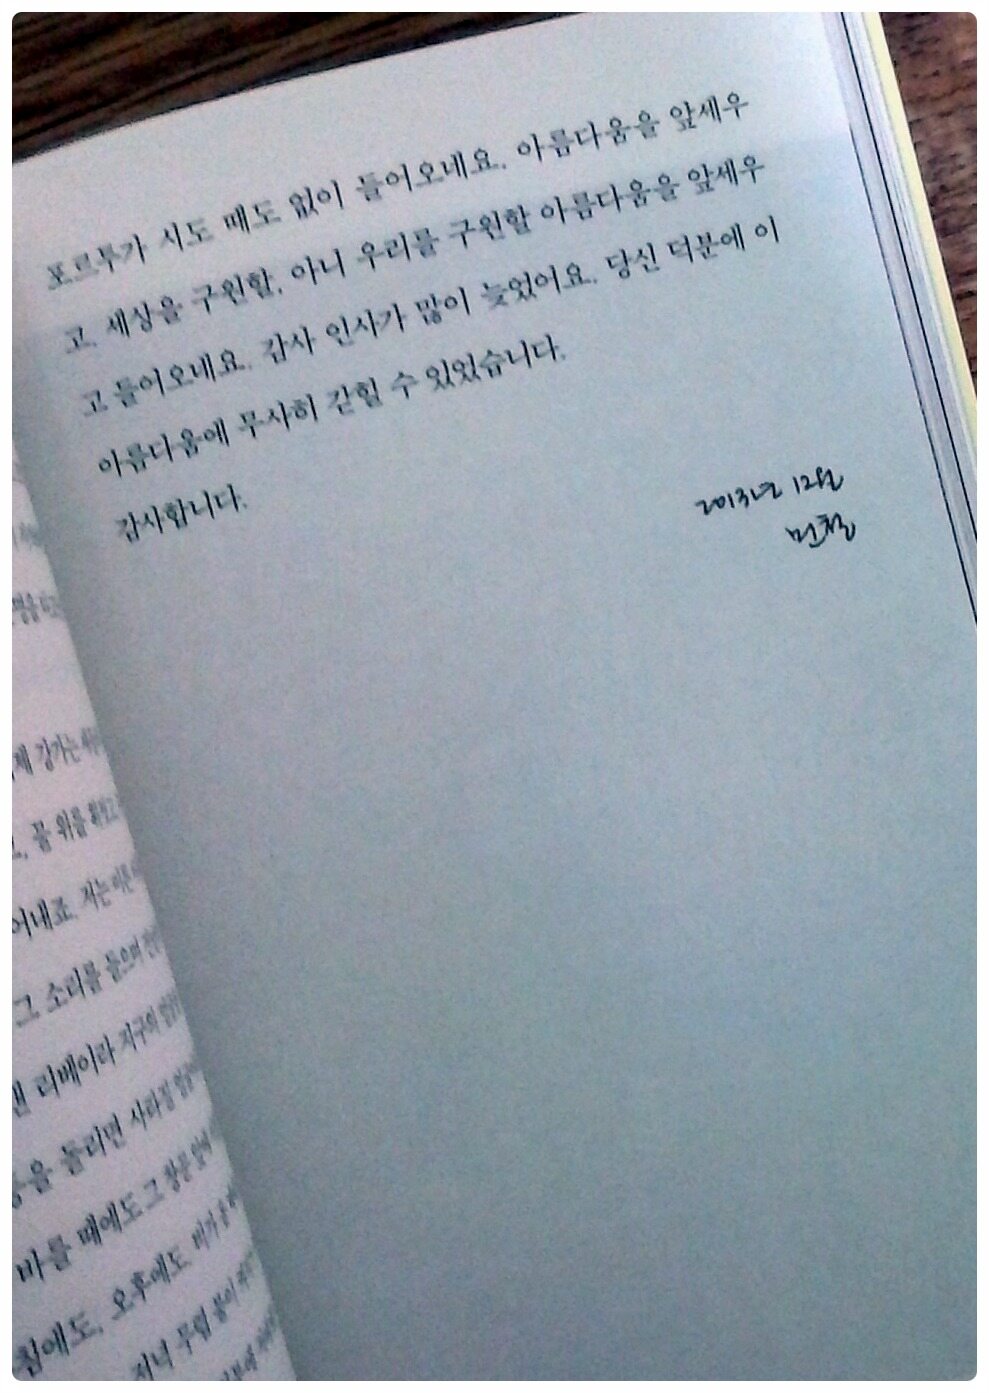 포르투가 시도 때도 없이 들어오네요. 아름다움을 앞세우
고. 세상을 구원할, 아니 우리를 구원할 아름다움을 앞세우
고 들어오네요. 감사 인사가 많이 늦었어요. 당신 덕분에 이
아름다움에 무사히 갇힐 수 있었습니다.
감사합니다.
2013년 12월
민철
강가는
꿈 위를
어내죠. 저는
그 소리를 들으며
낸 리베이라 지구의
등을 돌리면 사라질
바를 때에도 그 창문 앞에
침에도, 오후에도 비가 올
저녁 무렵